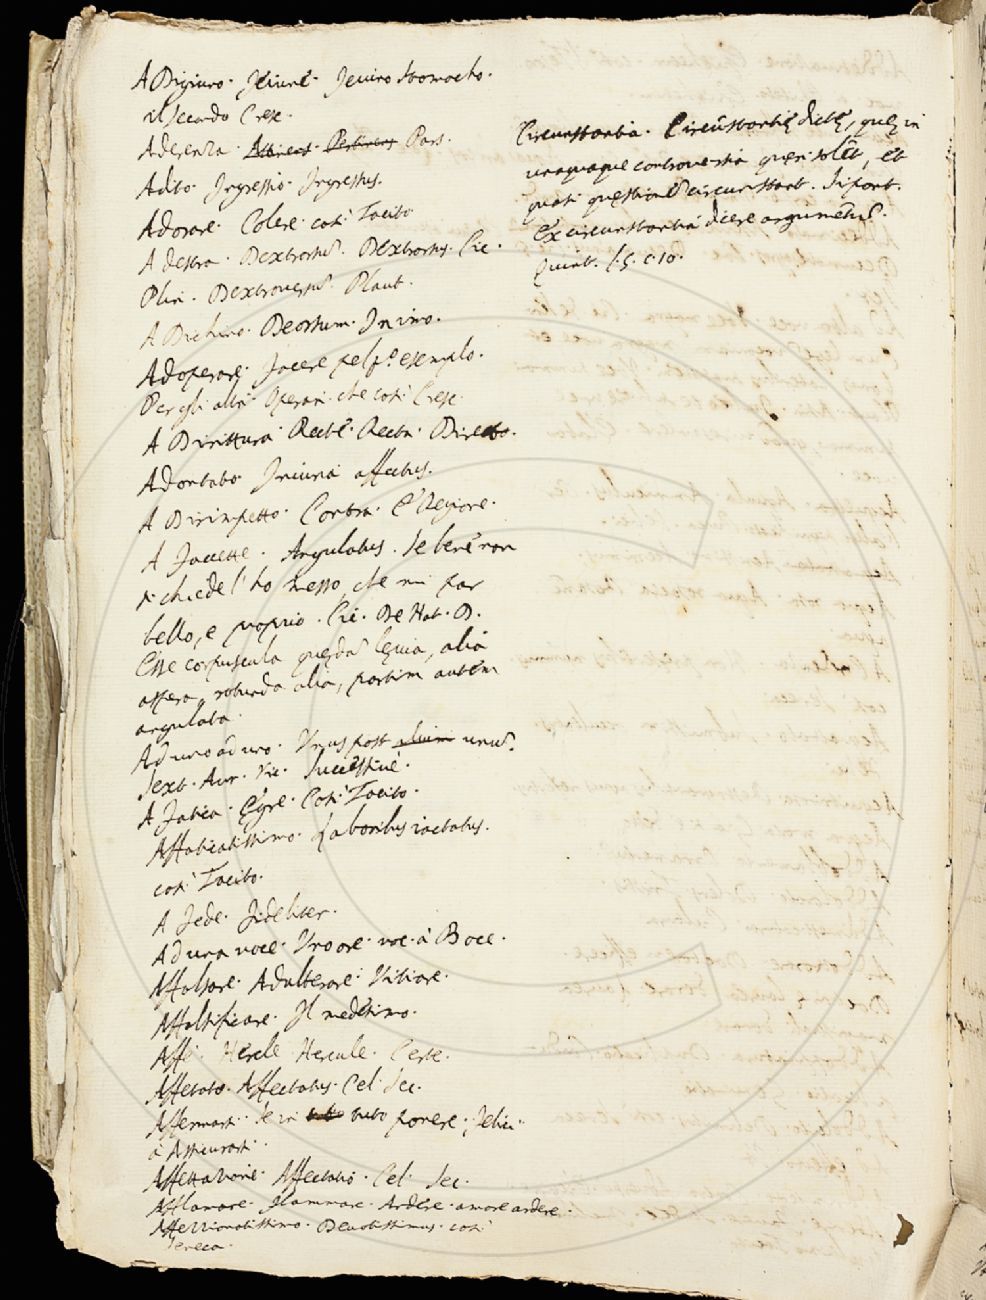 A Digiuno. Jeiunè. Jeiuno stomacho.
il secondo Cresc.
Aderenza. Attinens. Pertinens Pars.
Adito. Ingressio. Ingressus.
Adorare. Colere. così Tacito
A destra. Dextrorsũ. Dextrorsus. Cic.
Plin. Dextroversũ. Plaut.
A Dichino. Deorsum. In imo.
Adoperare. Jacere
Per gli altri. Operari. che così Cresc.
A Dirittura. Rectè. Recta. Directo.
Adontato. Iniuria affectus.
A Dirimpetto. Contra. E Regione.
A Faccette. Angulatus. Se bene non
si chiede l'ho messo, che mi par
bello, e proprio. Cic. De Nat. D.
Esse corpuscula quędã lęvia, alia
aspera, rotunda alia, partim autem
angulata.
Ad uno ad uno. Unus post unũ.
Sext. Aur. Vic. Successivè.
A Fatica. Ęgrè. Così Tacito.
Affaticatissimo. Laboribus iactatus.
così Tacito.
A Fede. Fideliter.
Ad una voce. Uno ore. voc. à Boce.
Affalsare. Adulterare. Vitiare.
Affalsificare. Il medesimo.
Affè. Hercle. Hercule. Certe.
Affetato. Affectatus. Cel. Sec.
Affermarsi. Se in tuto ponere.
ò Assicurarsi.
Affettazione. Affectatio. Cel. Sec.
Affiamare. Flammare. Ardere. amore ardere.
Affezzionatissimo. Devotissimus. così
Seneca.
Circunstantia. Circũstantię dictę, quę in
unaquaque controversia queri solẽt, et
quasi quęstionẽ circunstant. Si font.
Ex circunstantia dicere argumentũ.
Quint. l. 5. c. 10.